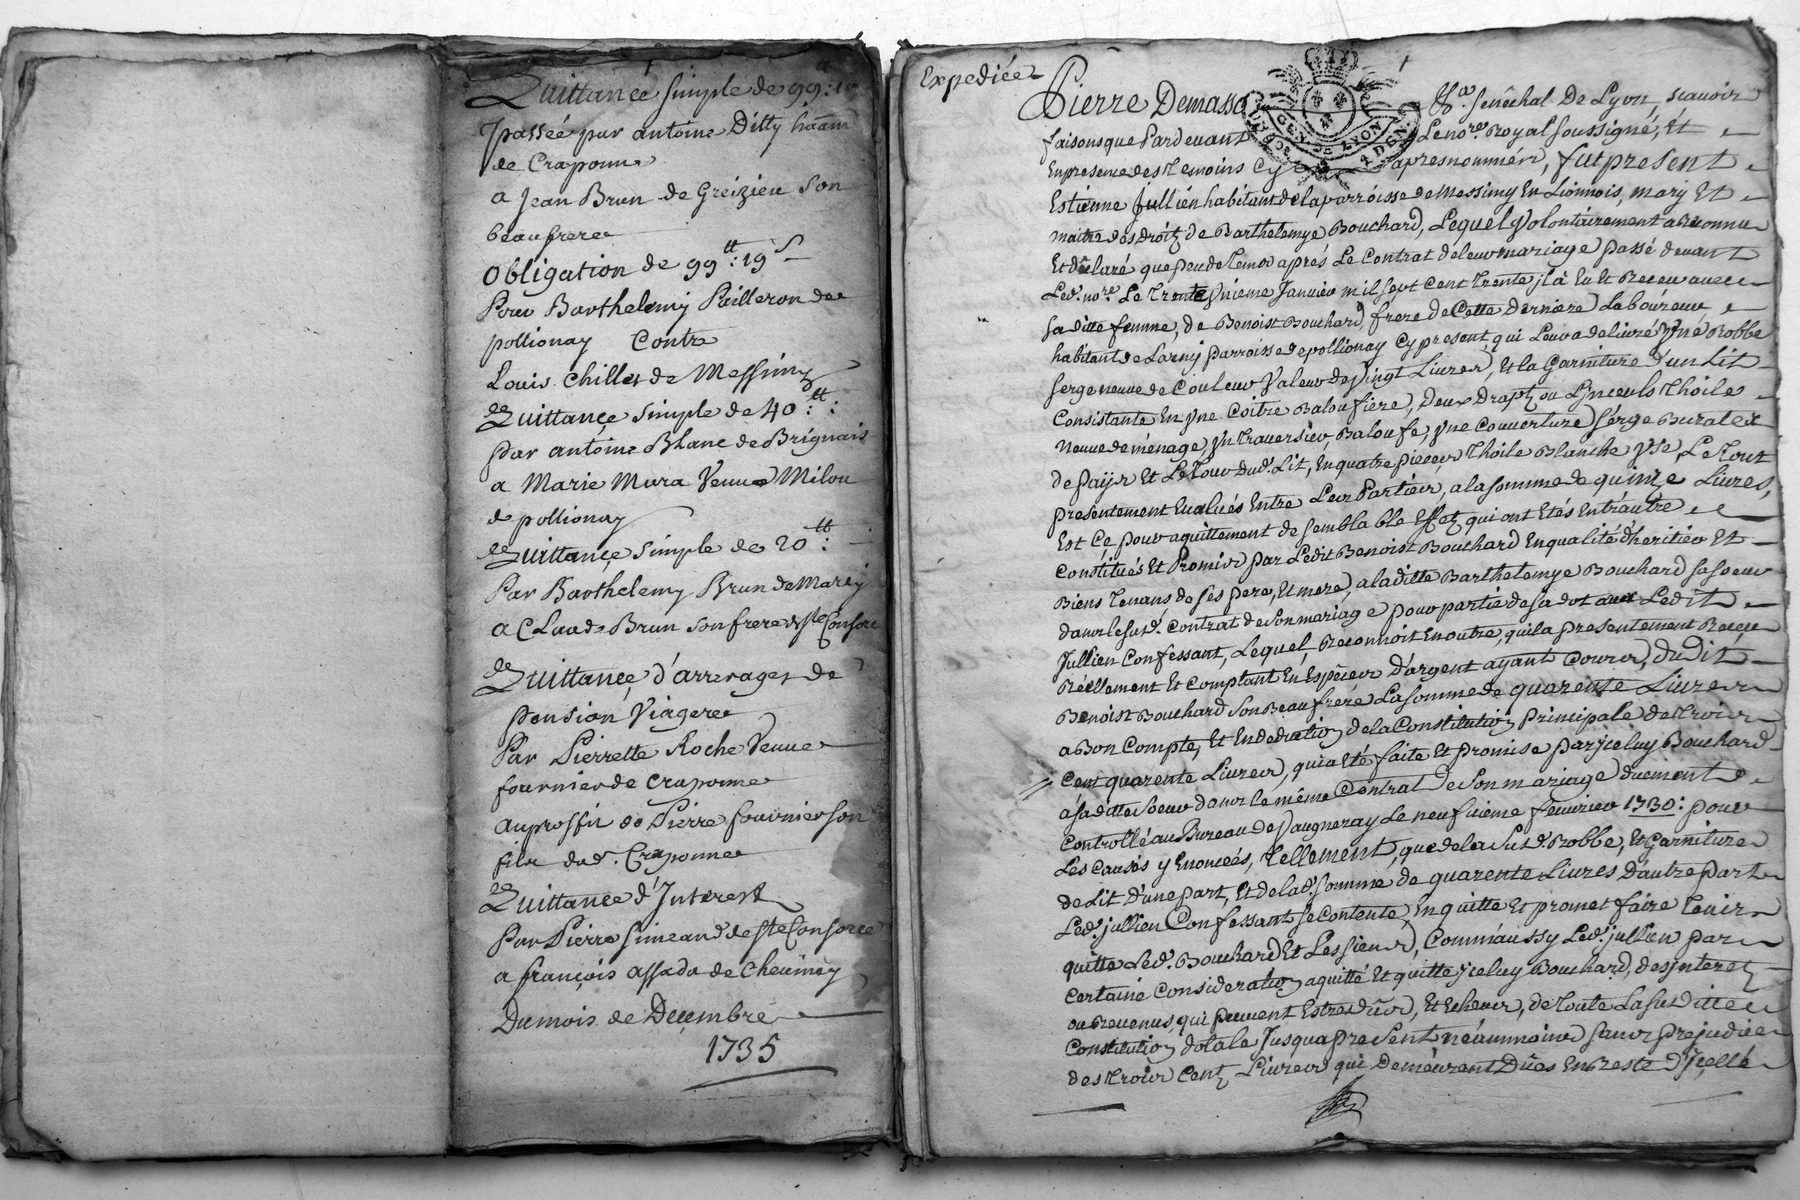 Quittance simple de 99:tt
passée par antoine Ditty
de Craponne
a Jean Brun de Greizieu Son
beaufrere
Obligation de 99tt: 19s
Pour Barthelemy Pailleron de
pollionay Contre
Louis Chillet de Messimy
Quittance simple de 40:tt:
par antoine Blanc de Brignais
a Marie Mura Veuve Milou
de pollionay
Quittance simple de 20tt:
Par Barthelemy Brun de Marcy
a Claude Brun son frere de Ste Consorce
Quittance d'arrerages de
pension Viagere
Par Pierrette Roche Veuve
fournier de Craponne
au proffit de Pierre fournier son
fils dud. Craponne
Quittance d'Interest
Par Pierre Simeand de Ste Consorce
a françois assada de Cheviney
Du mois de Decembre
1735
Expediée
Pierre Demasso Senêchal De Lyon, scavoir
GEN DE LYON
4 DEN
faisons que Pardevant Le nore. Royal soussigné, Et
En presence des temoins Cy apres nommés, fut present
Estienne Jullien habitant de la parroisse de Messimy En Lionnois, mary Et
maitre des droits de Barthelemye Bouchard, Lequel Volontairement a Reconnu
Et declaré que peu de tems aprés Le Contrat de leur mariage passé devant
Led. nore. Le trente unieme Janvier mil sept cent trente il a Eu Et Receu avec
sa ditte femme, de Benoist Bouchard, frere de Cette Derniere Laboureur
habitant de Larny parroisse de pollionay Cy present, qui Leur a delivré Une Robbe
serge neuve de Couleur Valeur de Vingt Livres, Et la Garniture d'un Lit
Consistante En Une Coitre Baloufiere, Deux Draps ou Linceuls thoile
Neuve de ménage, Un traversier Baloufe, Une Couverture serge
de païs Et Le tour dud. Lit, En quatre pieces thoile Blanche Use, Le tout
presentement Evalués Entre Les Parties, a la somme de quinze Livres,
Est Ce pour aquittement de semblable Effets qui ont Etés Entr'autre
Constitués Et Promis par Ledit Benoist Bouchard En qualité d'heritier Et
Biens tenans de ses pere, Et mere, a la ditte Barthelemye Bouchard sa soeur
dans le susd. Contrat de Son mariage pour partie de sa dot Ledit
Jullien Confessant, Lequel Reconnoit En outre, qu'il a presentement Receu
Réellement Et Comptant En Especes D'argent ayant Cours, Dudit
Benoist Bouchard Son Beaufrére La somme de quarente Livres
a Bon Compte, Et En deduction de la Constitution Principale de trois
Cent quarente Livres, qui a Eté faite Et promise par iceluy Bouchard
à sa ditte Soeur dans le même Contrat de Son mariage duement
Controllé au Bureau de Vaugneray Le neufvieme fevrier 1730: pour
Les Causes y Enoncées, Tellement, que de la Susd. Robbe, Et Garniture
de Lit D'une part, Et de lad. somme de quarente Livres D'autre part
Led. jullien Confessant se Contente, En quitte Et promet faire tenir
quitte Led. Bouchard Et Les siens, Comm'aussy Led. jullien par
Certaine Consideration a quitté Et quitte iceluy Bouchard, des interets
ou Revenus, qui peuvent Estre dûs, Et Echeus, de toute La susditte
Constitution dotale Jusqu'a present néanmoins sans prejudice
des trois Cents Livres qui Demeurent Dûes En Reste D'Icelle